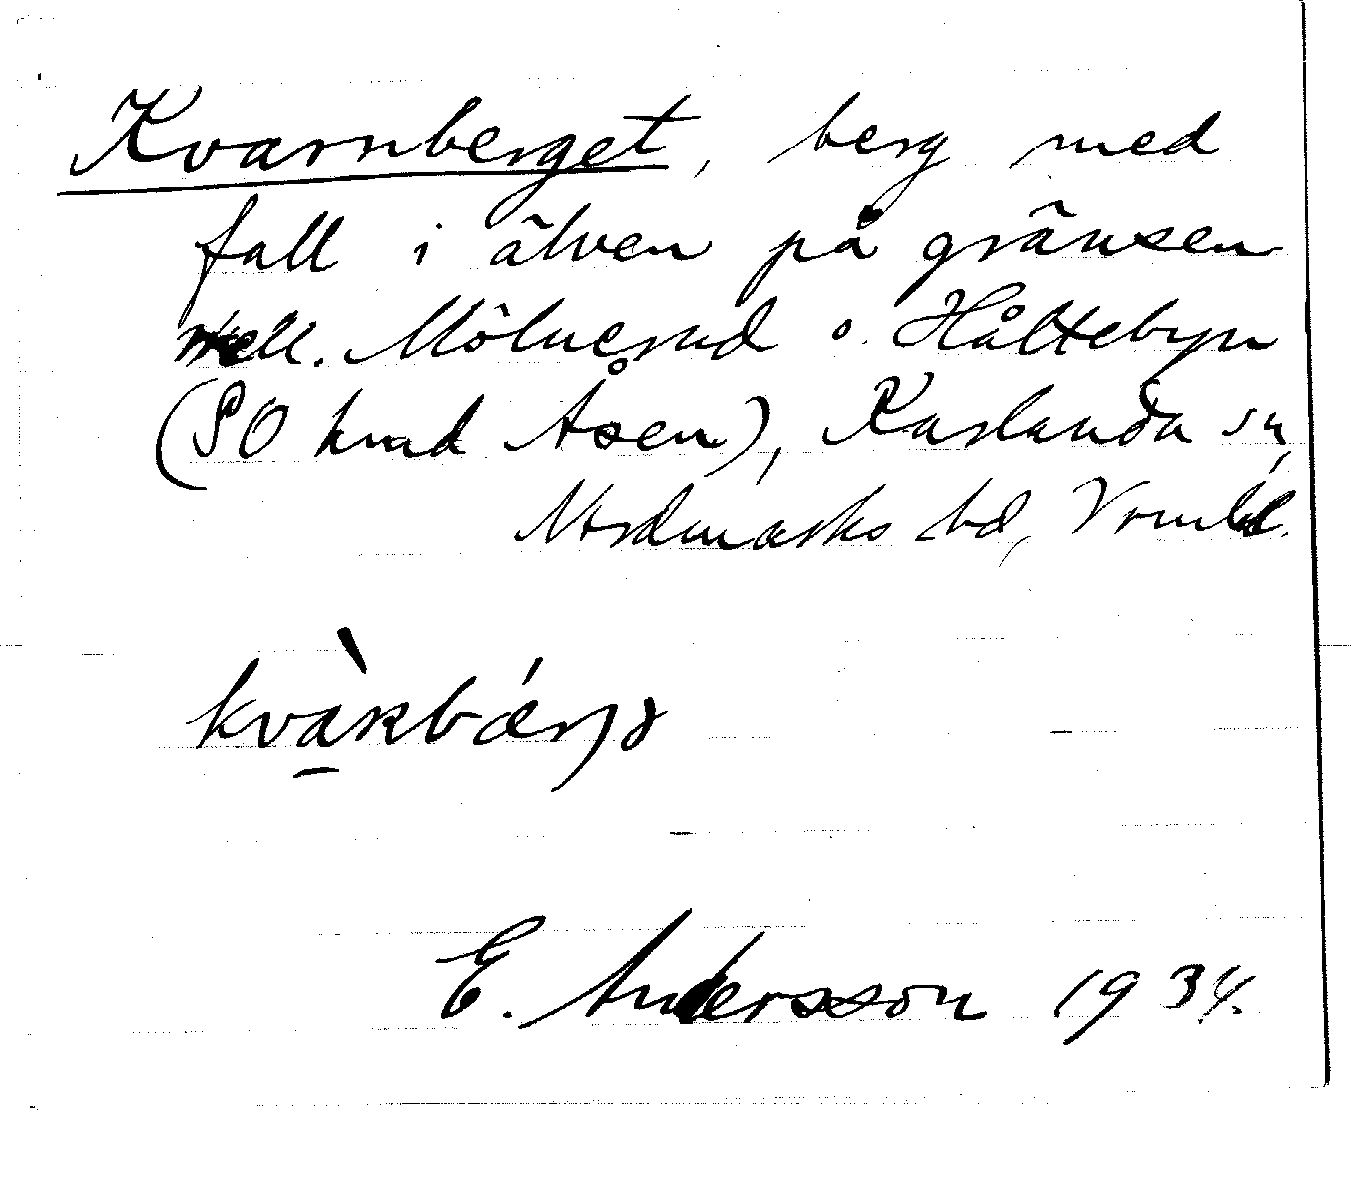 Kvarnberget, berg med
fall i älven på gränsen
mell. Mölnerud o. Håltebyn
(SO hmd Åsen), Karlanda sn,
Nordmarks hd, Vrmld.
kvàṟkbǽrjə
E. Andersson 1934.